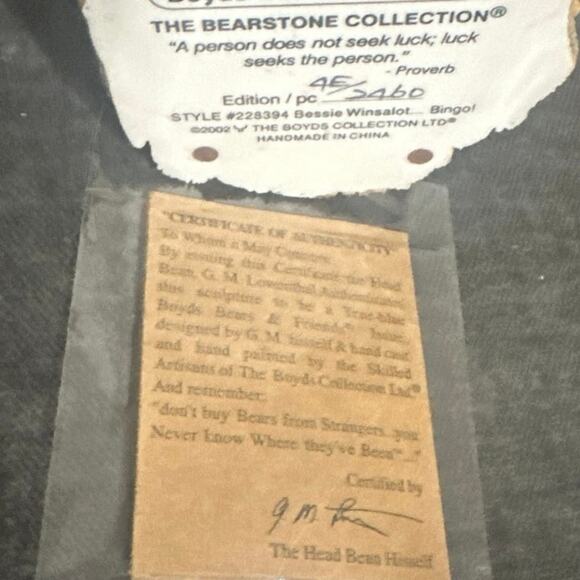 THE BEARSTONE COLLECTION®
"A person does not seek luck; luck
seeks the person."
- Proverb
Edition / pc 4E/2460
STYLE #228394 Bessie Winsalot... Bingo!
©2002 THE BOYDS COLLECTION LTD®
HANDMADE IN CHINA
"CERTIFICATE OF AUTHENTICITY"
To Whom it May Concern:
By issuing this Certificate the Head
Bean, G. M. Lowenthal Authenticates
this sculpture to be a True-blue
Boyds Bears & Friends® Issue,
designed by G. M. hisself & hand cast
and hand painted by the Skilled
Artisans of The Boyds Collection Ltd®
And remember:
"don't buy Bears from Strangers...you
Never Know Where they've Been"...
Certified by
G M
The Head Bean Hisself